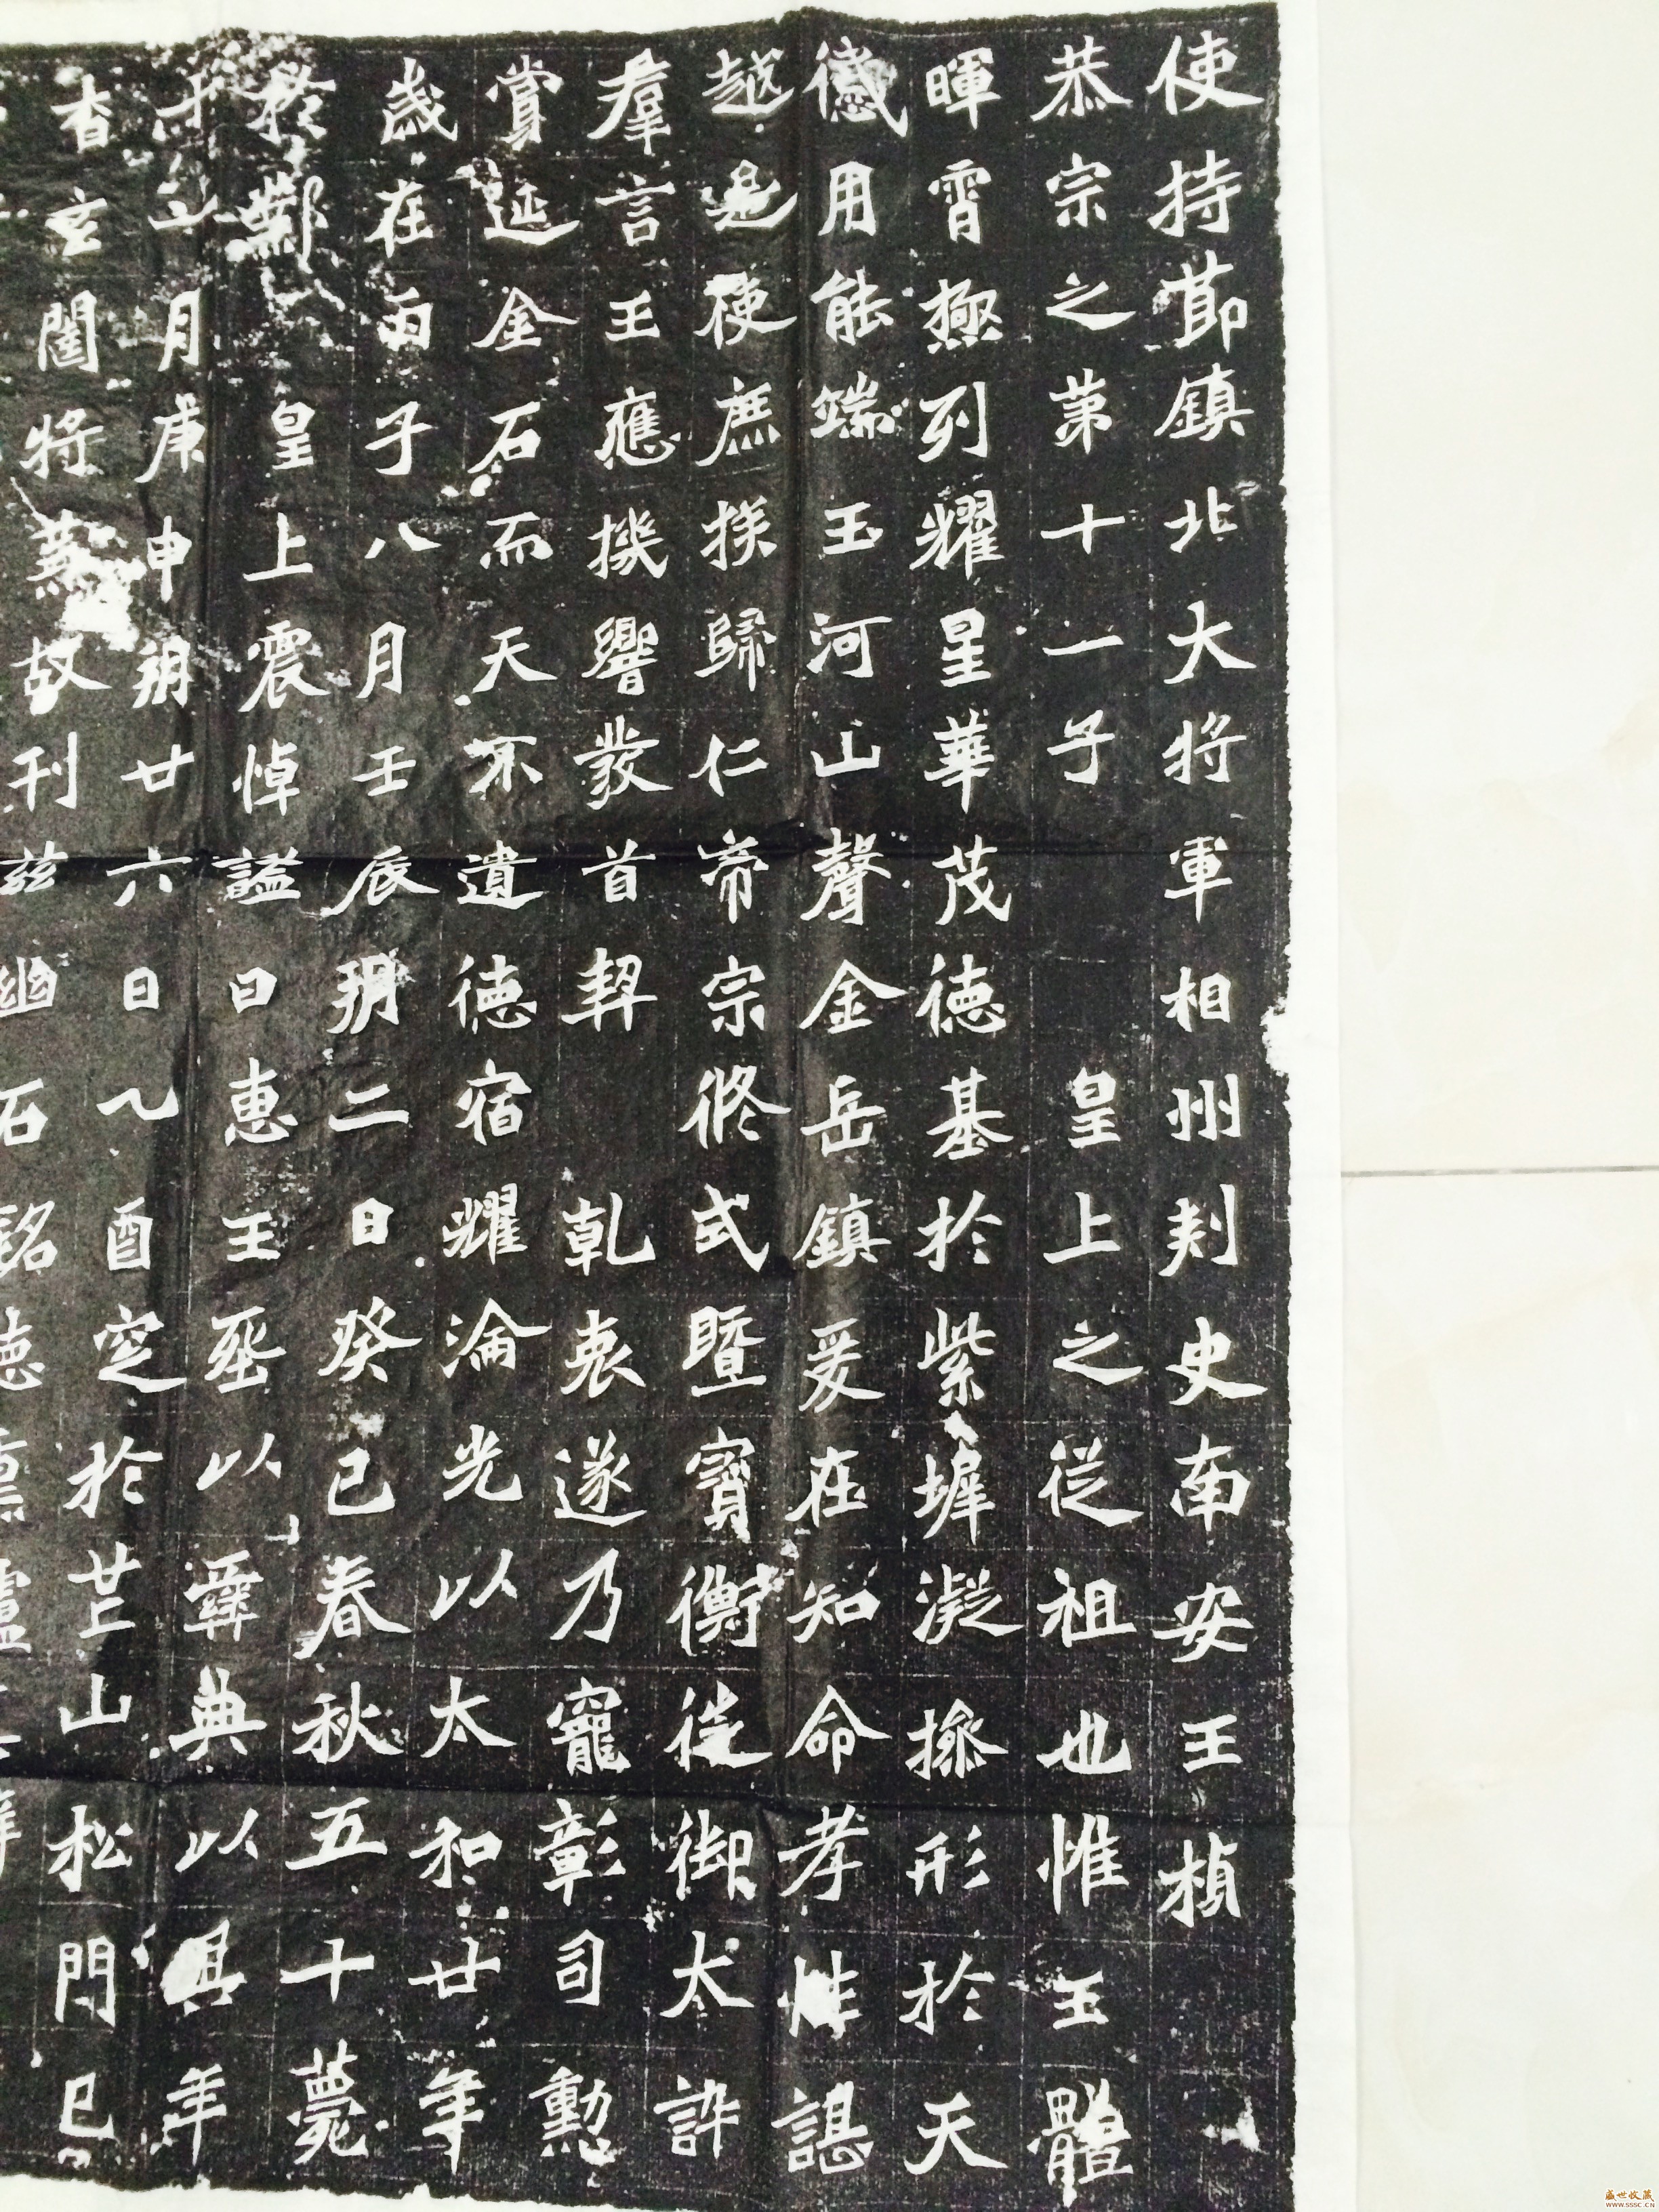 使持節鎮北大將軍相州刺史南安王楨
恭宗之第十一子 皇上之從祖也惟王體
暉霄極列耀星華茂德基於紫墀凝操形於天
感用能端玉河山聲金岳鎮爰在知命孝性諶
越是使庶族歸仁帝宗攸式暨寶衡徙御大訊
羣言王應機響發首契 乾衷遂乃寵彰司勳
賞延金石而天不遺德宿耀淪光以太和廿年
歲在丙子八月壬辰朔二日癸巳春秋五十薨
於鄴 皇上震悼諡曰惠王葬以彝典以其年
十一月庚申朔廿六日乙酉窆於芒山松門已
杳玄闥將蕪故刊茲幽石銘德熏壚
盛世收藏
WWW.SSSC.CN